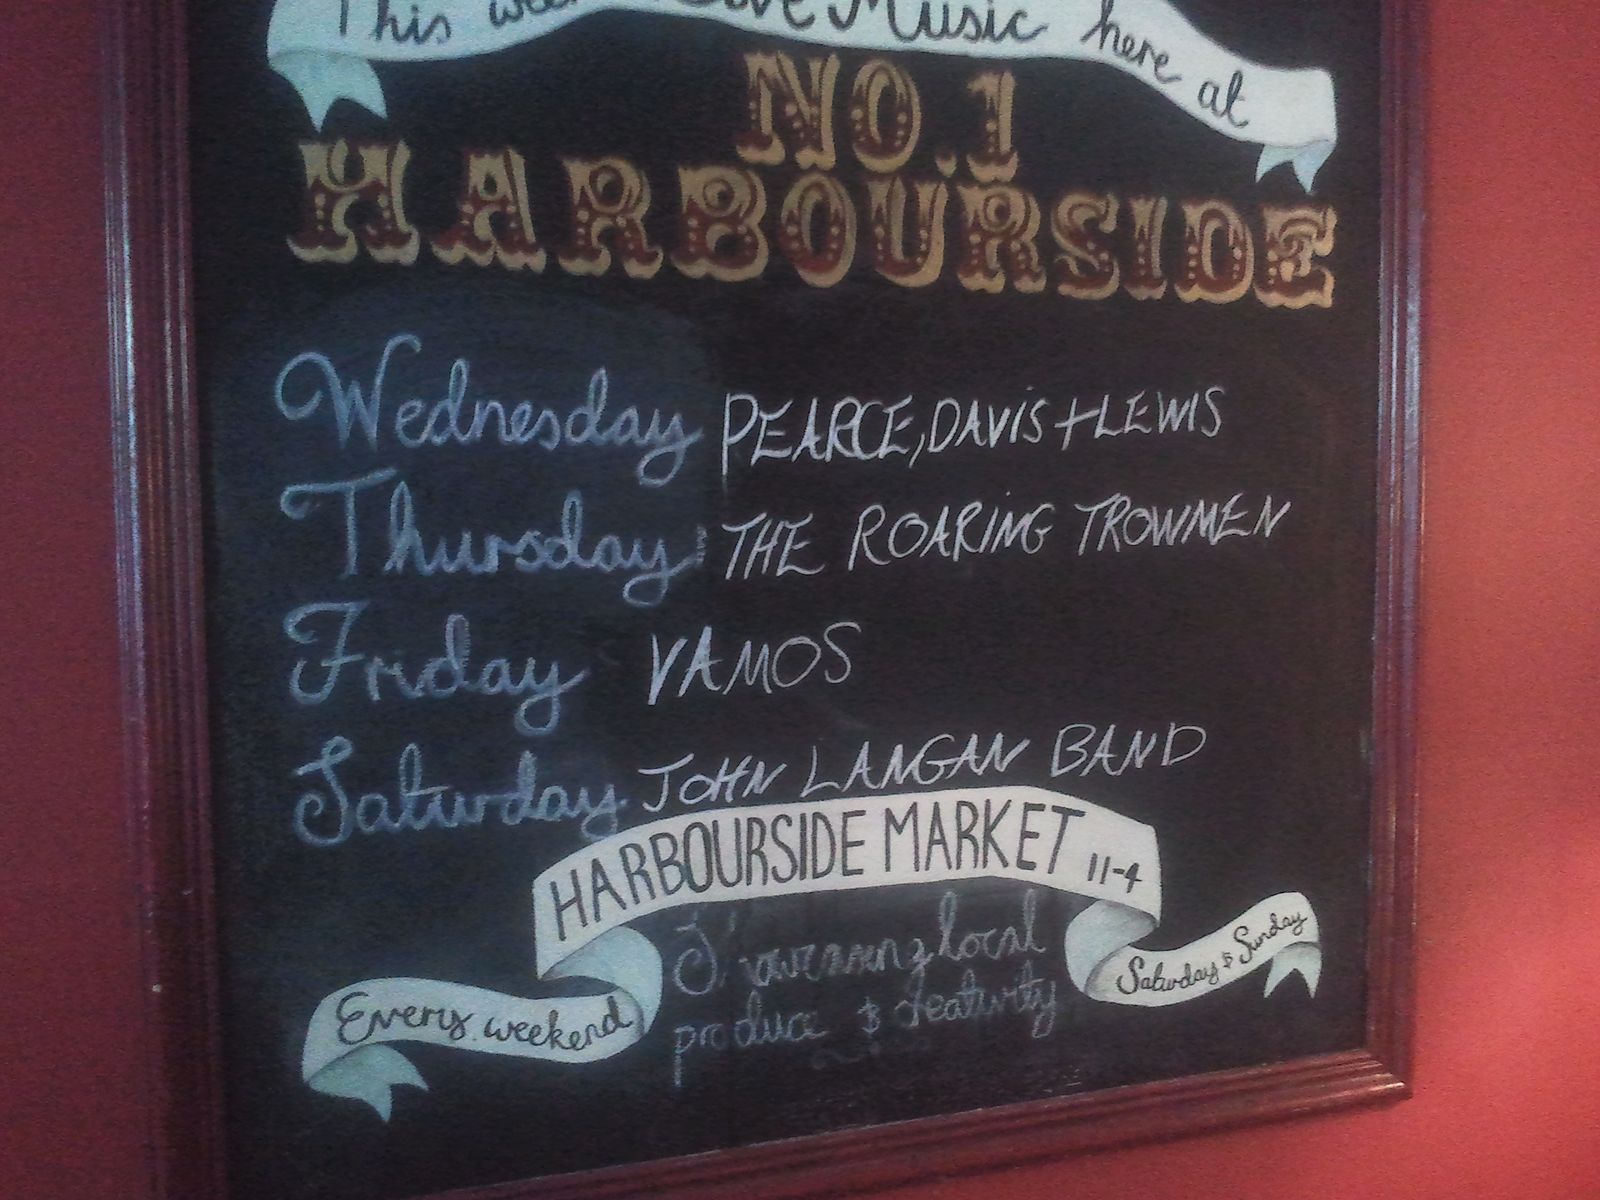 This week Live Music here at
NO.1
HARBOURSIDE
Wednesday PEARCE, DAVIS + LEWIS
Thursday THE ROARING TROWMEN
Friday VAMOS
Saturday JOHN LANGAN BAND
HARBOURSIDE MARKET 11-4
Every weekend
Saturday & Sunday
local
produce & creativity